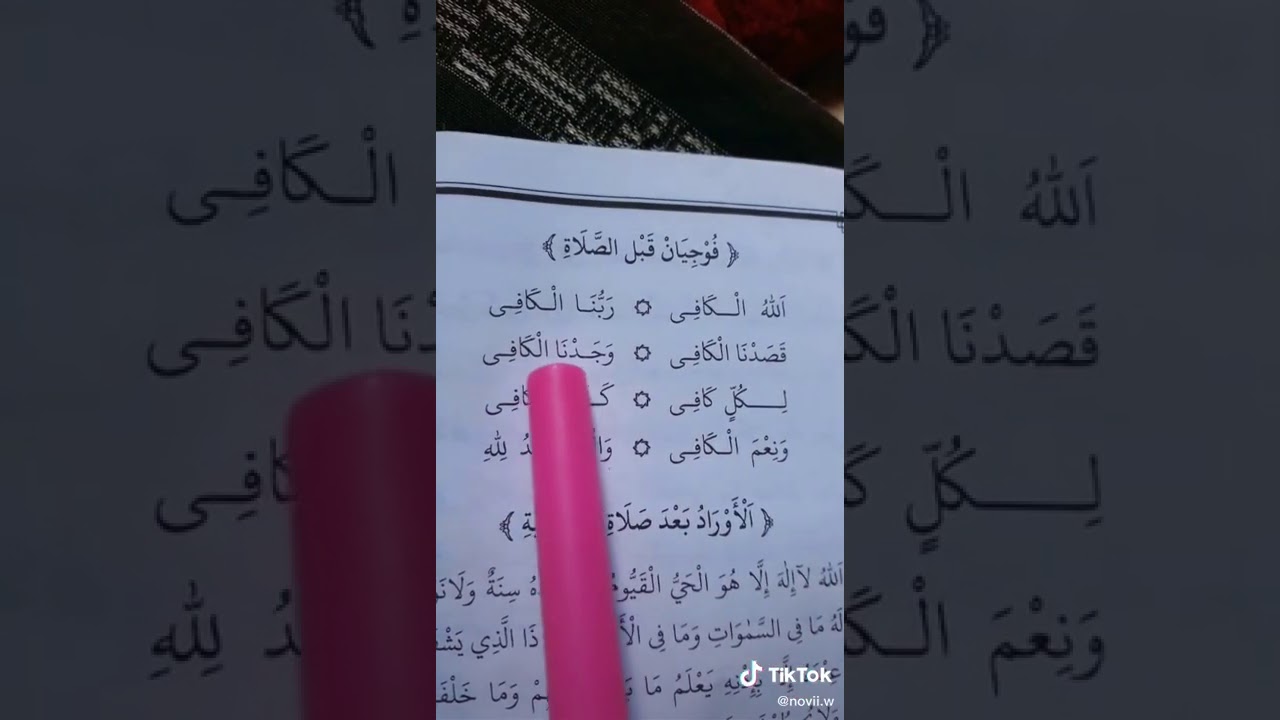 ﴿ فُوْجِيَانْ قَبْل الصَّلَاةِ ﴾
اَللهُ الْـكَافِـى ۞ رَبُّنَـا الْـكَافِـى
قَصَدْنَا الْكَافِـى ۞ وَجَـدْنَا الْكَافِـى
لِـكُلٍّ كَافِـى ۞
وَنِعْمَ الْـكَافِـى ۞ لِلّٰهِ
﴿ اَلْأَوْرَادُ بَعْدَ صَلَاةِ ﴾
اَللهُ لَآإِلٰهَ إِلَّا هُوَ الْحَيُّ الْقَيُّومُ سِنَةٌ
لَهُ مَا فِى السَّمٰوَاتِ وَمَا فِى ذَا الَّذِي
إِلَّا بِإِذْنِهِ يَعْلَمُ مَا وَمَا
TikTok
@novii.w